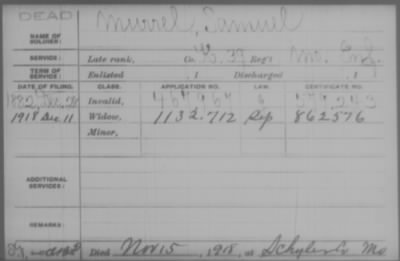 DEAD
Murrel, Samuel
NAME OF SOLDIER:
SERVICE: Late rank, Co. 39 Reg't Mo. Inf.
TERM OF SERVICE: Enlisted , 1 Discharged , 1
DATE OF FILING. CLASS. APPLICATION NO. LAW. CERTIFICATE NO.
1882, Invalid, 467967
1918 Dec 11 Widow, 1132.712 Sep 862576
Minor,
ADDITIONAL SERVICES:
REMARKS:
Died Nov 15, 1918, at Schyler Co Mo